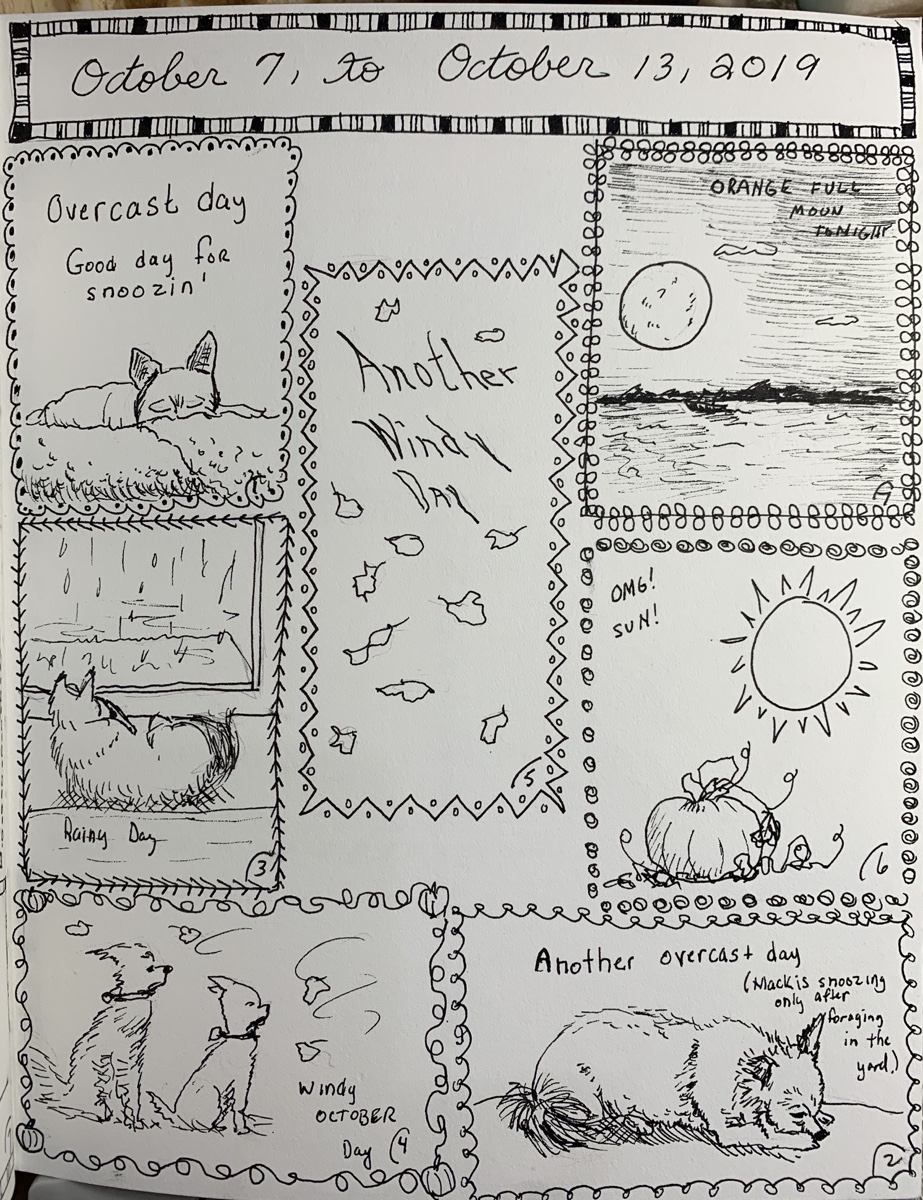 October 7, to October 13, 2019
Overcast day
Good day for
snoozin'
Another
Windy
Day
5
ORANGE FULL
MOON
TONIGHT
7
OMG!
SUN!
6
Rainy Day
3
Windy
OCTOBER
Day 4
Another overcast day
(Mack is snoozing
only after
foraging
in the
yard.)
2